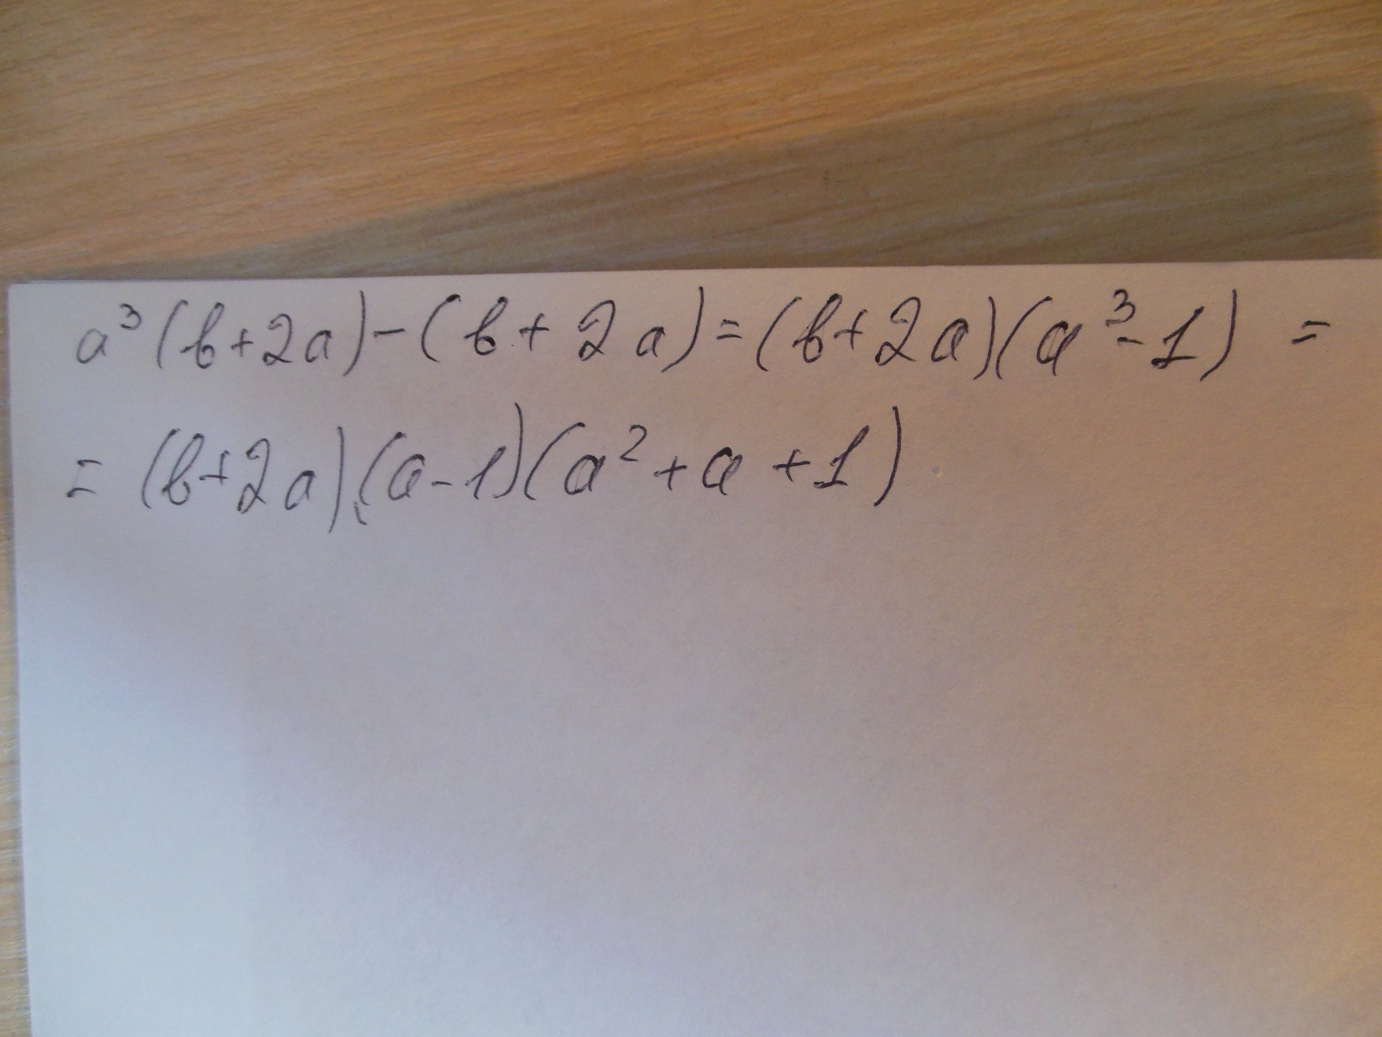 a³(b+2a)-(b+2a)=(b+2a)(a³-1) =
= (b+2a)(a-1)(a²+a+1)